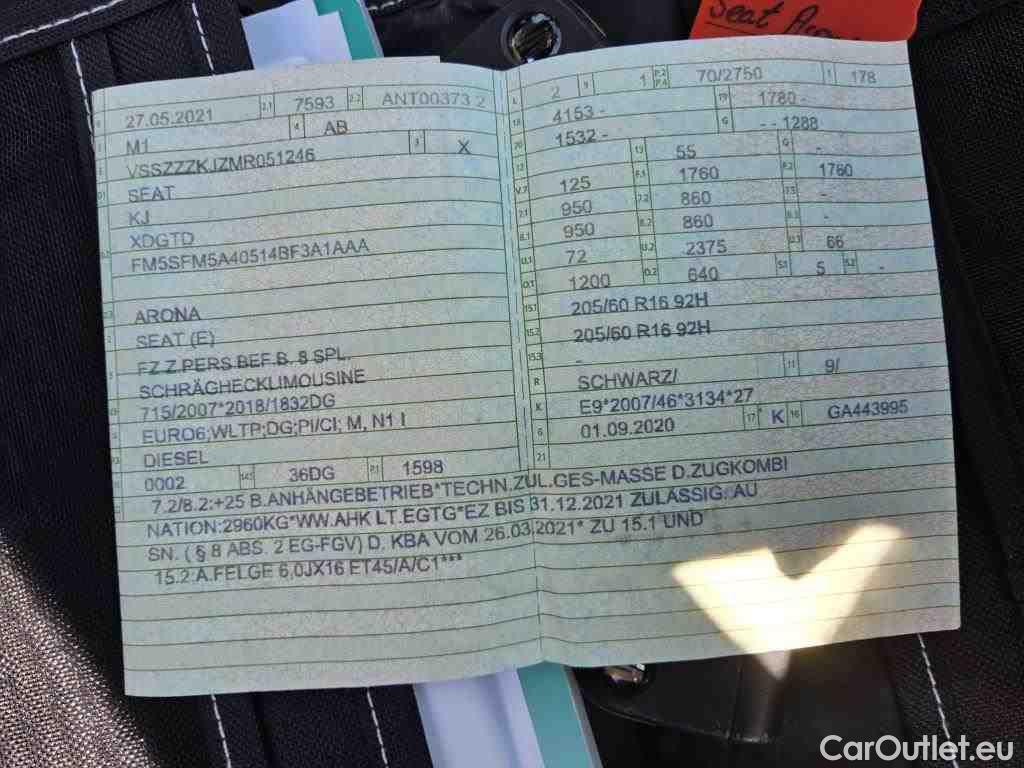 Seat
27.05.2021 2.1 7593 2.2 ANT00373 2
M1 4 AB
VSSZZZKJZMR051246 3 X
SEAT
KJ
XDGTD
FM5SFM5A40514BF3A1AAA
ARONA
SEAT (E)
FZ.Z.PERS.BEF.B. 8 SPL.
SCHRÄGHECKLIMOUSINE
715/2007*2018/1832DG
EURO6;WLTP;DG;PI/CI; M, N1 I
DIESEL
0002 14.1 36DG P.1 1598
L 2 9 1 P.2 P.4 70/2750 T 178
18 4153 - 19 1780 -
20 1532 - G - - 1288
12 13 55 Q -
V.7 125 F.1 1760 F.2 1760
7.1 950 7.2 860 7.3 -
8.1 950 8.2 860 8.3 -
U.1 72 U.2 2375 U.3 66
O.1 1200 O.2 640 S.1 5 S.2 -
15.1 205/60 R16 92H
15.2 205/60 R16 92H
15.3 -
R SCHWARZ/ 11 9/
K E9*2007/46*3134*27
6 01.09.2020 17 K 16 GA443995
21
7.2/8.2:+25 B.ANHÄNGEBETRIEB*TECHN.ZUL.GES-MASSE D.ZUGKOMBI
NATION:2960KG*WW.AHK LT.EGTG*EZ BIS 31.12.2021 ZULÄSSIG. AU
SN. ( § 8 ABS. 2 EG-FGV) D. KBA VOM 26.03.2021* ZU 15.1 UND
15.2:A.FELGE 6,0JX16 ET45/A/C1***
CarOutlet.eu